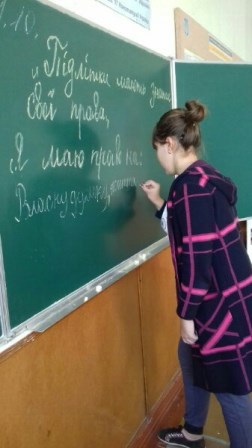 .10.
„Підлітки мають знати
свої права,
Я маю право на:
Власну думку,